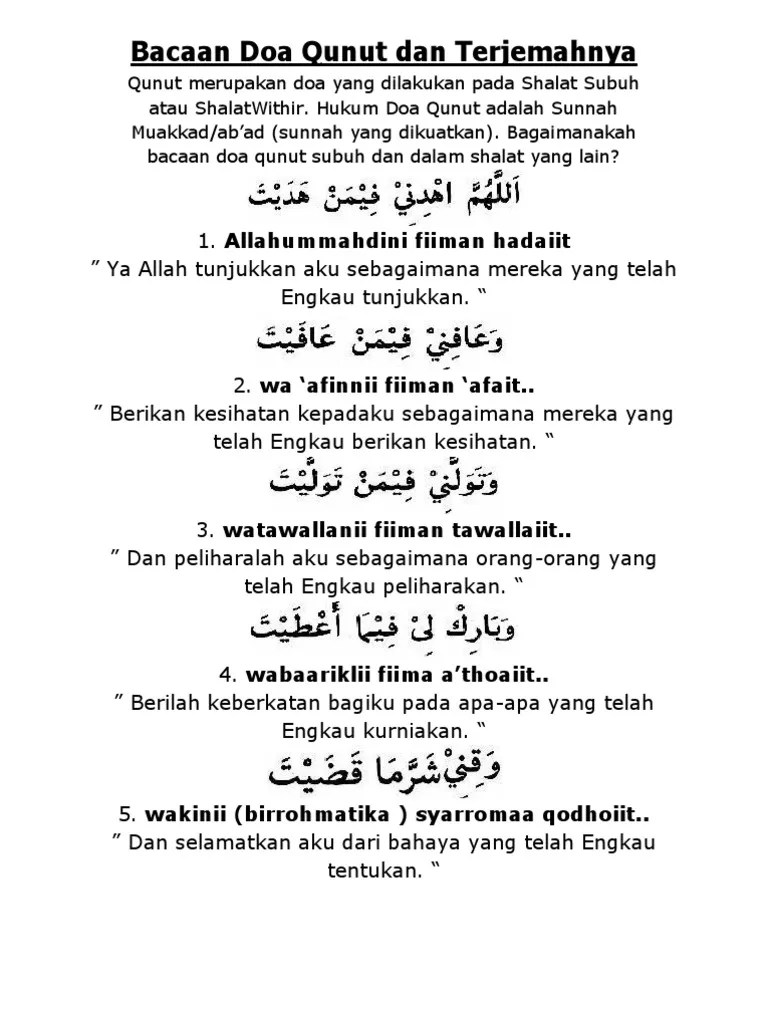 Bacaan Doa Qunut dan Terjemahnya
Qunut merupakan doa yang dilakukan pada Shalat Subuh
atau ShalatWithir. Hukum Doa Qunut adalah Sunnah
Muakkad/ab’ad (sunnah yang dikuatkan). Bagaimanakah
bacaan doa qunut subuh dan dalam shalat yang lain?
اَللَّهُمَّ اهْدِنِيْ فِيْمَنْ هَدَيْتَ
1. Allahummahdini fiiman hadaiit
” Ya Allah tunjukkan aku sebagaimana mereka yang telah
Engkau tunjukkan. “
وَعَافِنِيْ فِيْمَنْ عَافَيْتَ
2. wa ‘afinnii fiiman ‘afait..
” Berikan kesihatan kepadaku sebagaimana mereka yang
telah Engkau berikan kesihatan. “
وَتَوَلَّنِيْ فِيْمَنْ تَوَلَّيْتَ
3. watawallanii fiiman tawallaiit..
” Dan peliharalah aku sebagaimana orang-orang yang
telah Engkau peliharakan. “
وَبَارِكْ لِيْ فِيْمَا أَعْطَيْتَ
4. wabaariklii fiima a’thoaiit..
” Berilah keberkatan bagiku pada apa-apa yang telah
Engkau kurniakan. “
وَقِنِيْ شَرَّمَا قَضَيْتَ
5. wakinii (birrohmatika ) syarromaa qodhoiit..
” Dan selamatkan aku dari bahaya yang telah Engkau
tentukan. “